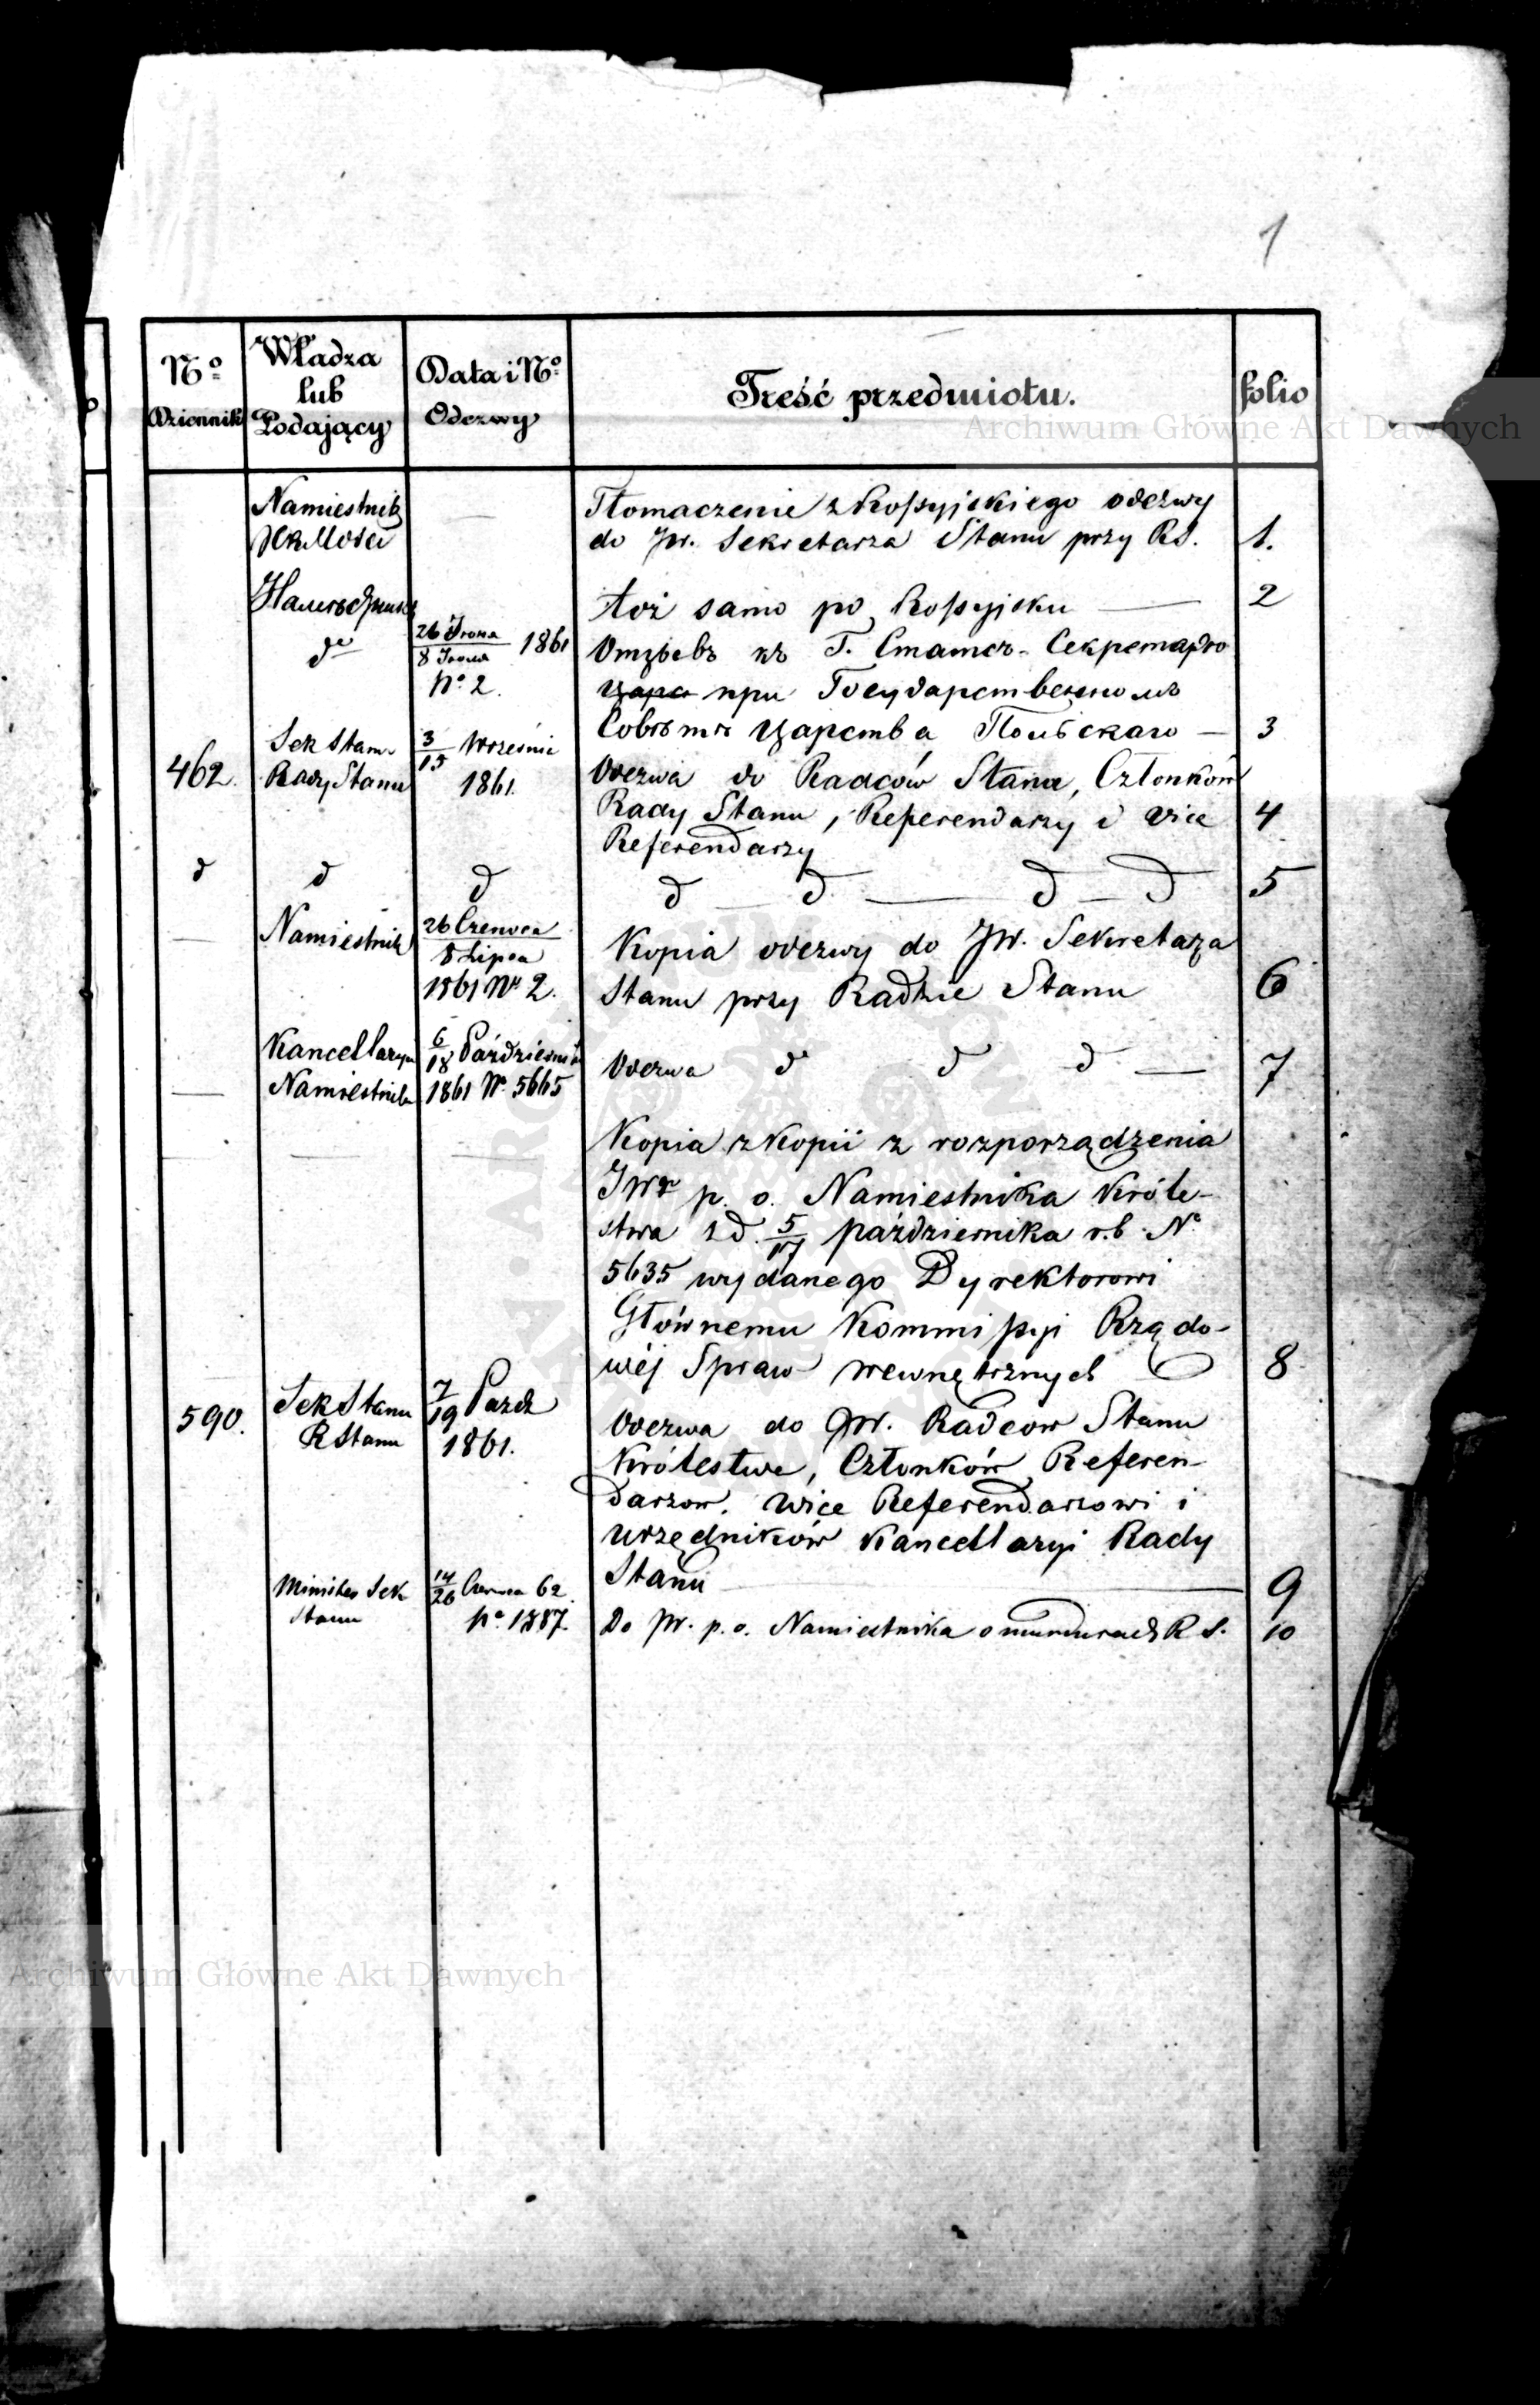 1
Nº Dziennik
Władza lub Podający
Data i Nº Odezwy
Treść przedmiotu.
folio
Archiwum Główne Akt Dawnych
Namiestnik
Tłomaczenie z Rossyjskiego odezwy
do JW. Sekretarza Stanu przy RS.
1.
Toż samo po Rossyjsku
2
dº
26 Іюня / 8 Іюля 1861
Nº 2.
Отзывъ къ Г. Статсъ-Секретарю
Царс при Государственномъ
Совѣтѣ Царства Польскаго
3
462.
Sek Stanu
Rady Stanu
3/15 Wrześnie
1861.
Odezwa do Radców Stanu, Członków
Rady Stanu, Referendarzy i Vice
Referendarzy
4
d d d d d d d
5
Namiestnik
26 Czerwca / 8 Lipca
1861 Nº 2.
Kopia odezwy do JW. Sekretarza
Stanu przy Radzie Stanu
6
Kancellarya
Namiestnika
6/18 Październik
1861 Nº 5665
Odezwa d d d
7
Kopia z Kopii z rozporządzenia
JW p. o. Namiestnika Króle-
stwa z d. 5/17 października r.b. Nº
5635 wydanego Dyrektorowi
Głównemu Kommissyi Rządo-
wéj Spraw Wewnętrznych
8
590.
Sek Stanu
R Stanu
7/19 Pazdz
1861.
Odezwa do JW. Radców Stanu
Królestwa, Członków Referen-
darzow. Wice Referendarzowi i
Urzędników Kancellaryi Rady
Stanu
9
Minister Sek
Stanu
14/26 Czerwca 62.
Nº 1887.
Do JW. p. o. Namiestnika o mundurach R S.
10
Archiwum Główne Akt Dawnych